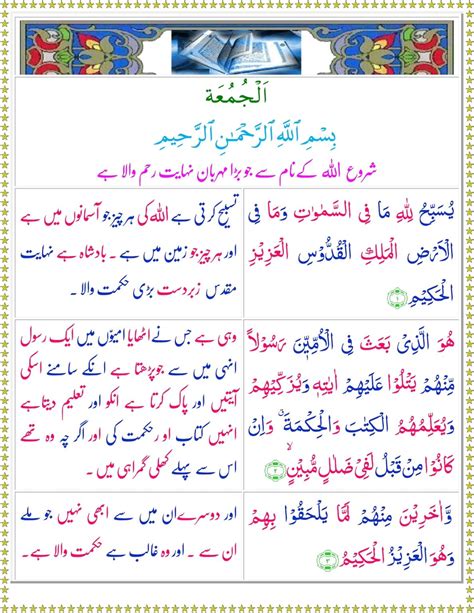 اَلْجُمُعَة
بِسْمِ ٱللَّهِ ٱلرَّحْمَـٰنِ ٱلرَّحِيمِ
شروع اللہ کے نام سے جو بڑا مہربان نہایت رحم والا ہے
يُسَبِّحُ لِلّٰهِ مَا فِى السَّمٰوٰتِ وَمَا فِى
الْاَرْضِ الْمَلِكِ الْقُدُّوْسِ الْعَزِيْزِ
الْحَكِيْمِ ۱
تسبیح کرتی ہے اللہ کی ہر چیز جو آسمانوں میں ہے
اور ہر چیز جو زمین میں ہے ۔ بادشاہ ہے نہایت
مقدس زبردست بڑی حکمت والا ۔
هُوَ الَّذِىْ بَعَثَ فِى الْاُمِّيّٖنَ رَسُوْلًا
مِّنْهُمْ يَتْلُوْا عَلَيْهِمْ اٰيٰتِهٖ وَيُزَكِّيْهِمْ
وَيُعَلِّمُهُمُ الْكِتٰبَ وَالْحِكْمَةَ ۗ وَاِنْ
كَانُوْا مِنْ قَبْلُ لَفِىْ ضَلٰلٍ مُّبِيْنٍ ۙ ۲
وہی ہے جس نے اٹھایا امیّوں میں ایک رسول
انہی میں سے جو پڑھتا ہے انکے سامنے اسکی
آیتیں اور پاک کرتا ہے انکو اور تعلیم دیتا ہے
انہیں کتاب او رحکمت کی اور اگر چہ وہ تھے
اس سے پہلے کھلی گمراہی میں ۔
وَّاٰخَرِيْنَ مِنْهُمْ لَمَّا يَلْحَقُوْا بِهِمْ
وَهُوَ الْعَزِيْزُ الْحَكِيْمُ ۳
اور دوسرے ان میں سے ابھی نہیں جو ملے
ان سے ۔ اور وہ غالب ہے حکمت والا ہے۔